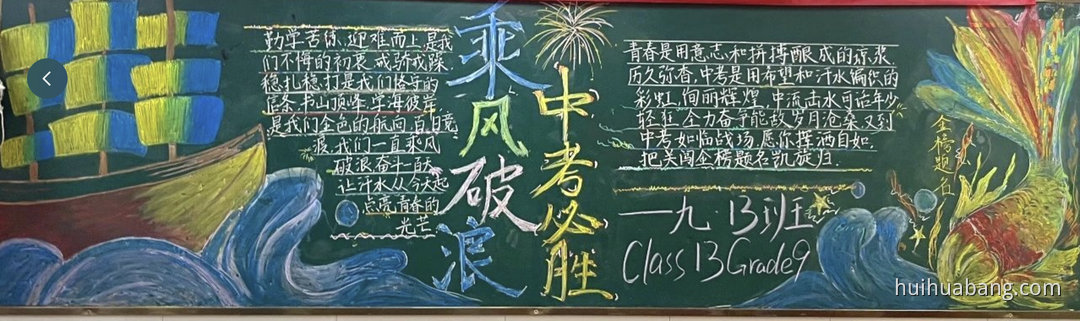 勤学苦练，迎难而上，是我
们不悔的初衷，戒骄戒躁，
稳扎稳打是我们恪守的
信条，书山顶峰，学海彼岸，
是我们金色的航向，百日竞
渡，我们一直乘风
破浪奋斗百天
让汗水从今天起
点亮青春的
光芒
乘风破浪
中考必胜
青春是用意志和拼搏酿成的琼浆，
历久弥香，中考是用希望和汗水编织的
彩虹，绚丽辉煌，中流击水可诒年少
轻狂，全力奋争能敌岁月沧桑，又到
中考如临战场，愿你挥洒自如，
把关闯金榜题名凯旋归.
一九·13班
Class 13 Grade9
金榜题名
huihuabang.com